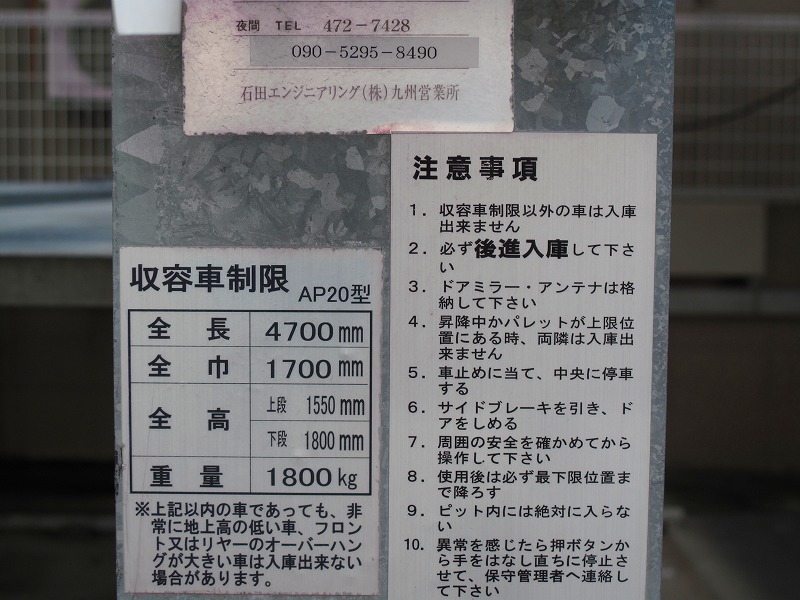 夜間 TEL 472-7428
090-5295-8490
石田エンジニアリング(株)九州営業所
収容車制限 AP20型
全長 4700mm
全巾 1700mm
全高 上段 1550mm
下段 1800mm
重量 1800kg
※上記以内の車であっても、非
常に地上高の低い車、フロン
ト又はリヤーのオーバーハン
グが大きい車は入庫出来ない
場合があります。
注意事項
1. 収容車制限以外の車は入庫
出来ません
2. 必ず後進入庫して下さ
い
3. ドアミラー・アンテナは格
納して下さい
4. 昇降中かパレットが上限位
置にある時、両隣は入庫出
来ません
5. 車止めに当て、中央に停車
する
6. サイドブレーキを引き、ド
アをしめる
7. 周囲の安全を確かめてから
操作して下さい
8. 使用後は必ず最下限位置ま
で降ろす
9. ピット内には絶対に入らな
い
10. 異常を感じたら押ボタンか
ら手をはなし直ちに停止さ
せて、保守管理者へ連絡し
て下さい